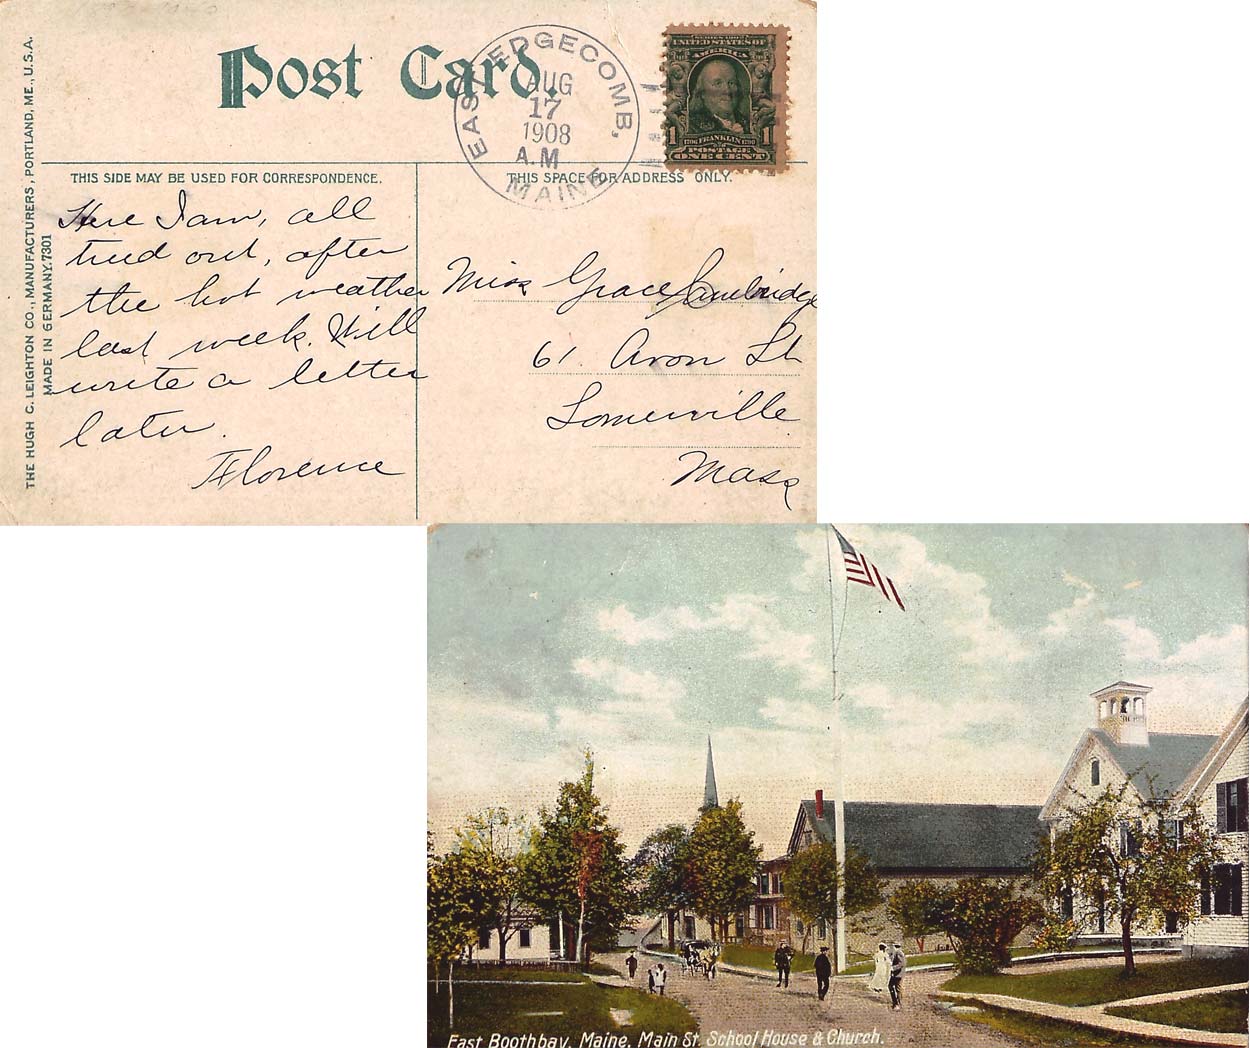 Post Card.
EAST EDGECOMB,
AUG
17
1908
A.M
MAINE
UNITED STATES OF
AMERICA
1 1
1706 FRANKLIN 1790
POSTAGE
ONE CENT
THE HUGH C. LEIGHTON CO., MANUFACTURERS, PORTLAND, ME., U.S.A.
MADE IN GERMANY. 7301
THIS SIDE MAY BE USED FOR CORRESPONDENCE.
THIS SPACE FOR ADDRESS ONLY.
Here I am, all
tired out, after
the hot weather
last week. Will
write a letter
later.
Florence
Miss Grace Cambridge
61. Avon St
Somerville
Mass
East Boothbay, Maine. Main St. School House & Church.